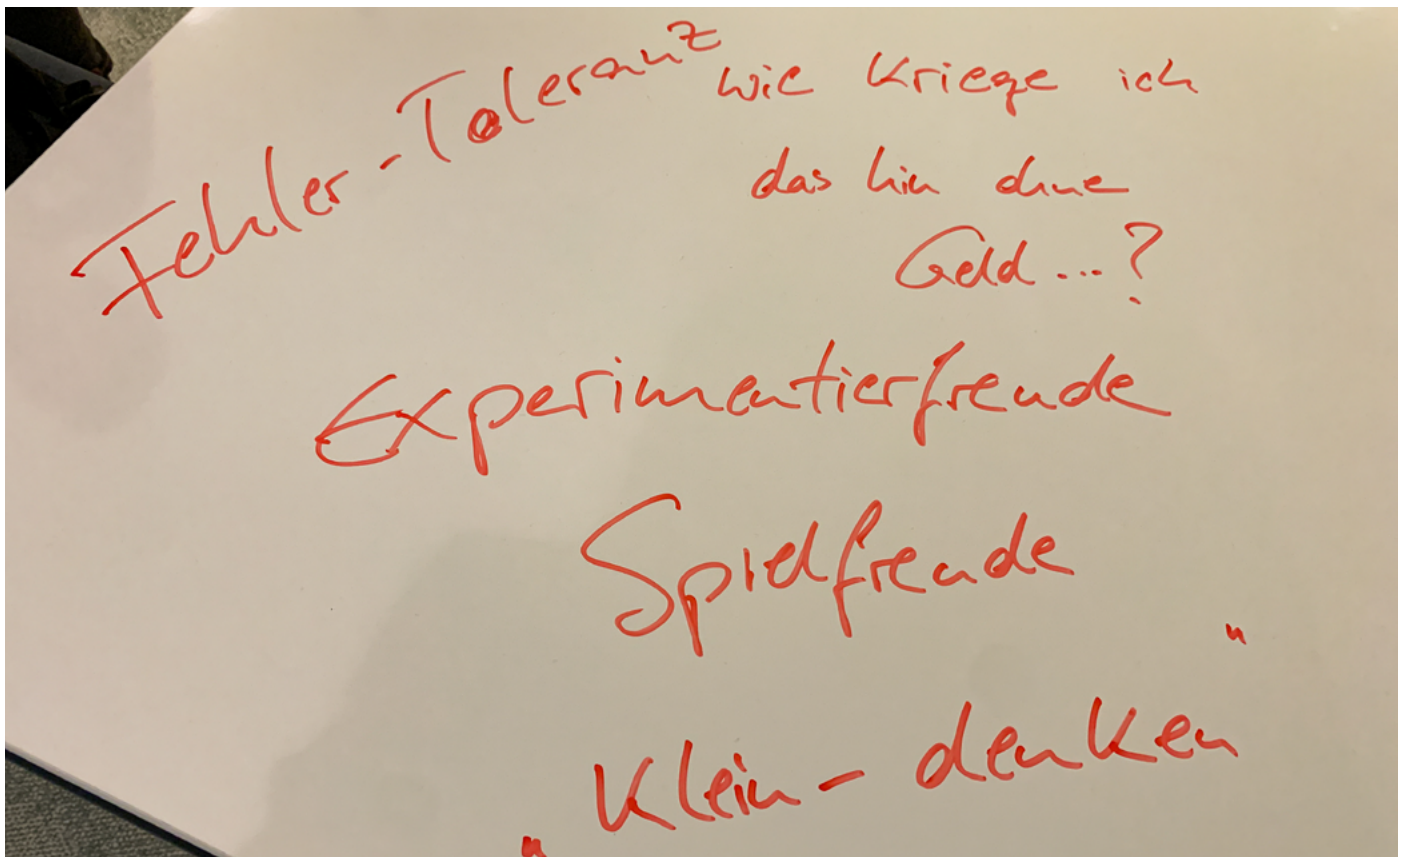 Fehler-Toleranz
wie kriege ich
das hin ohne
Geld...?
Experimentierfreude
Spielfreude
„Klein-denken“